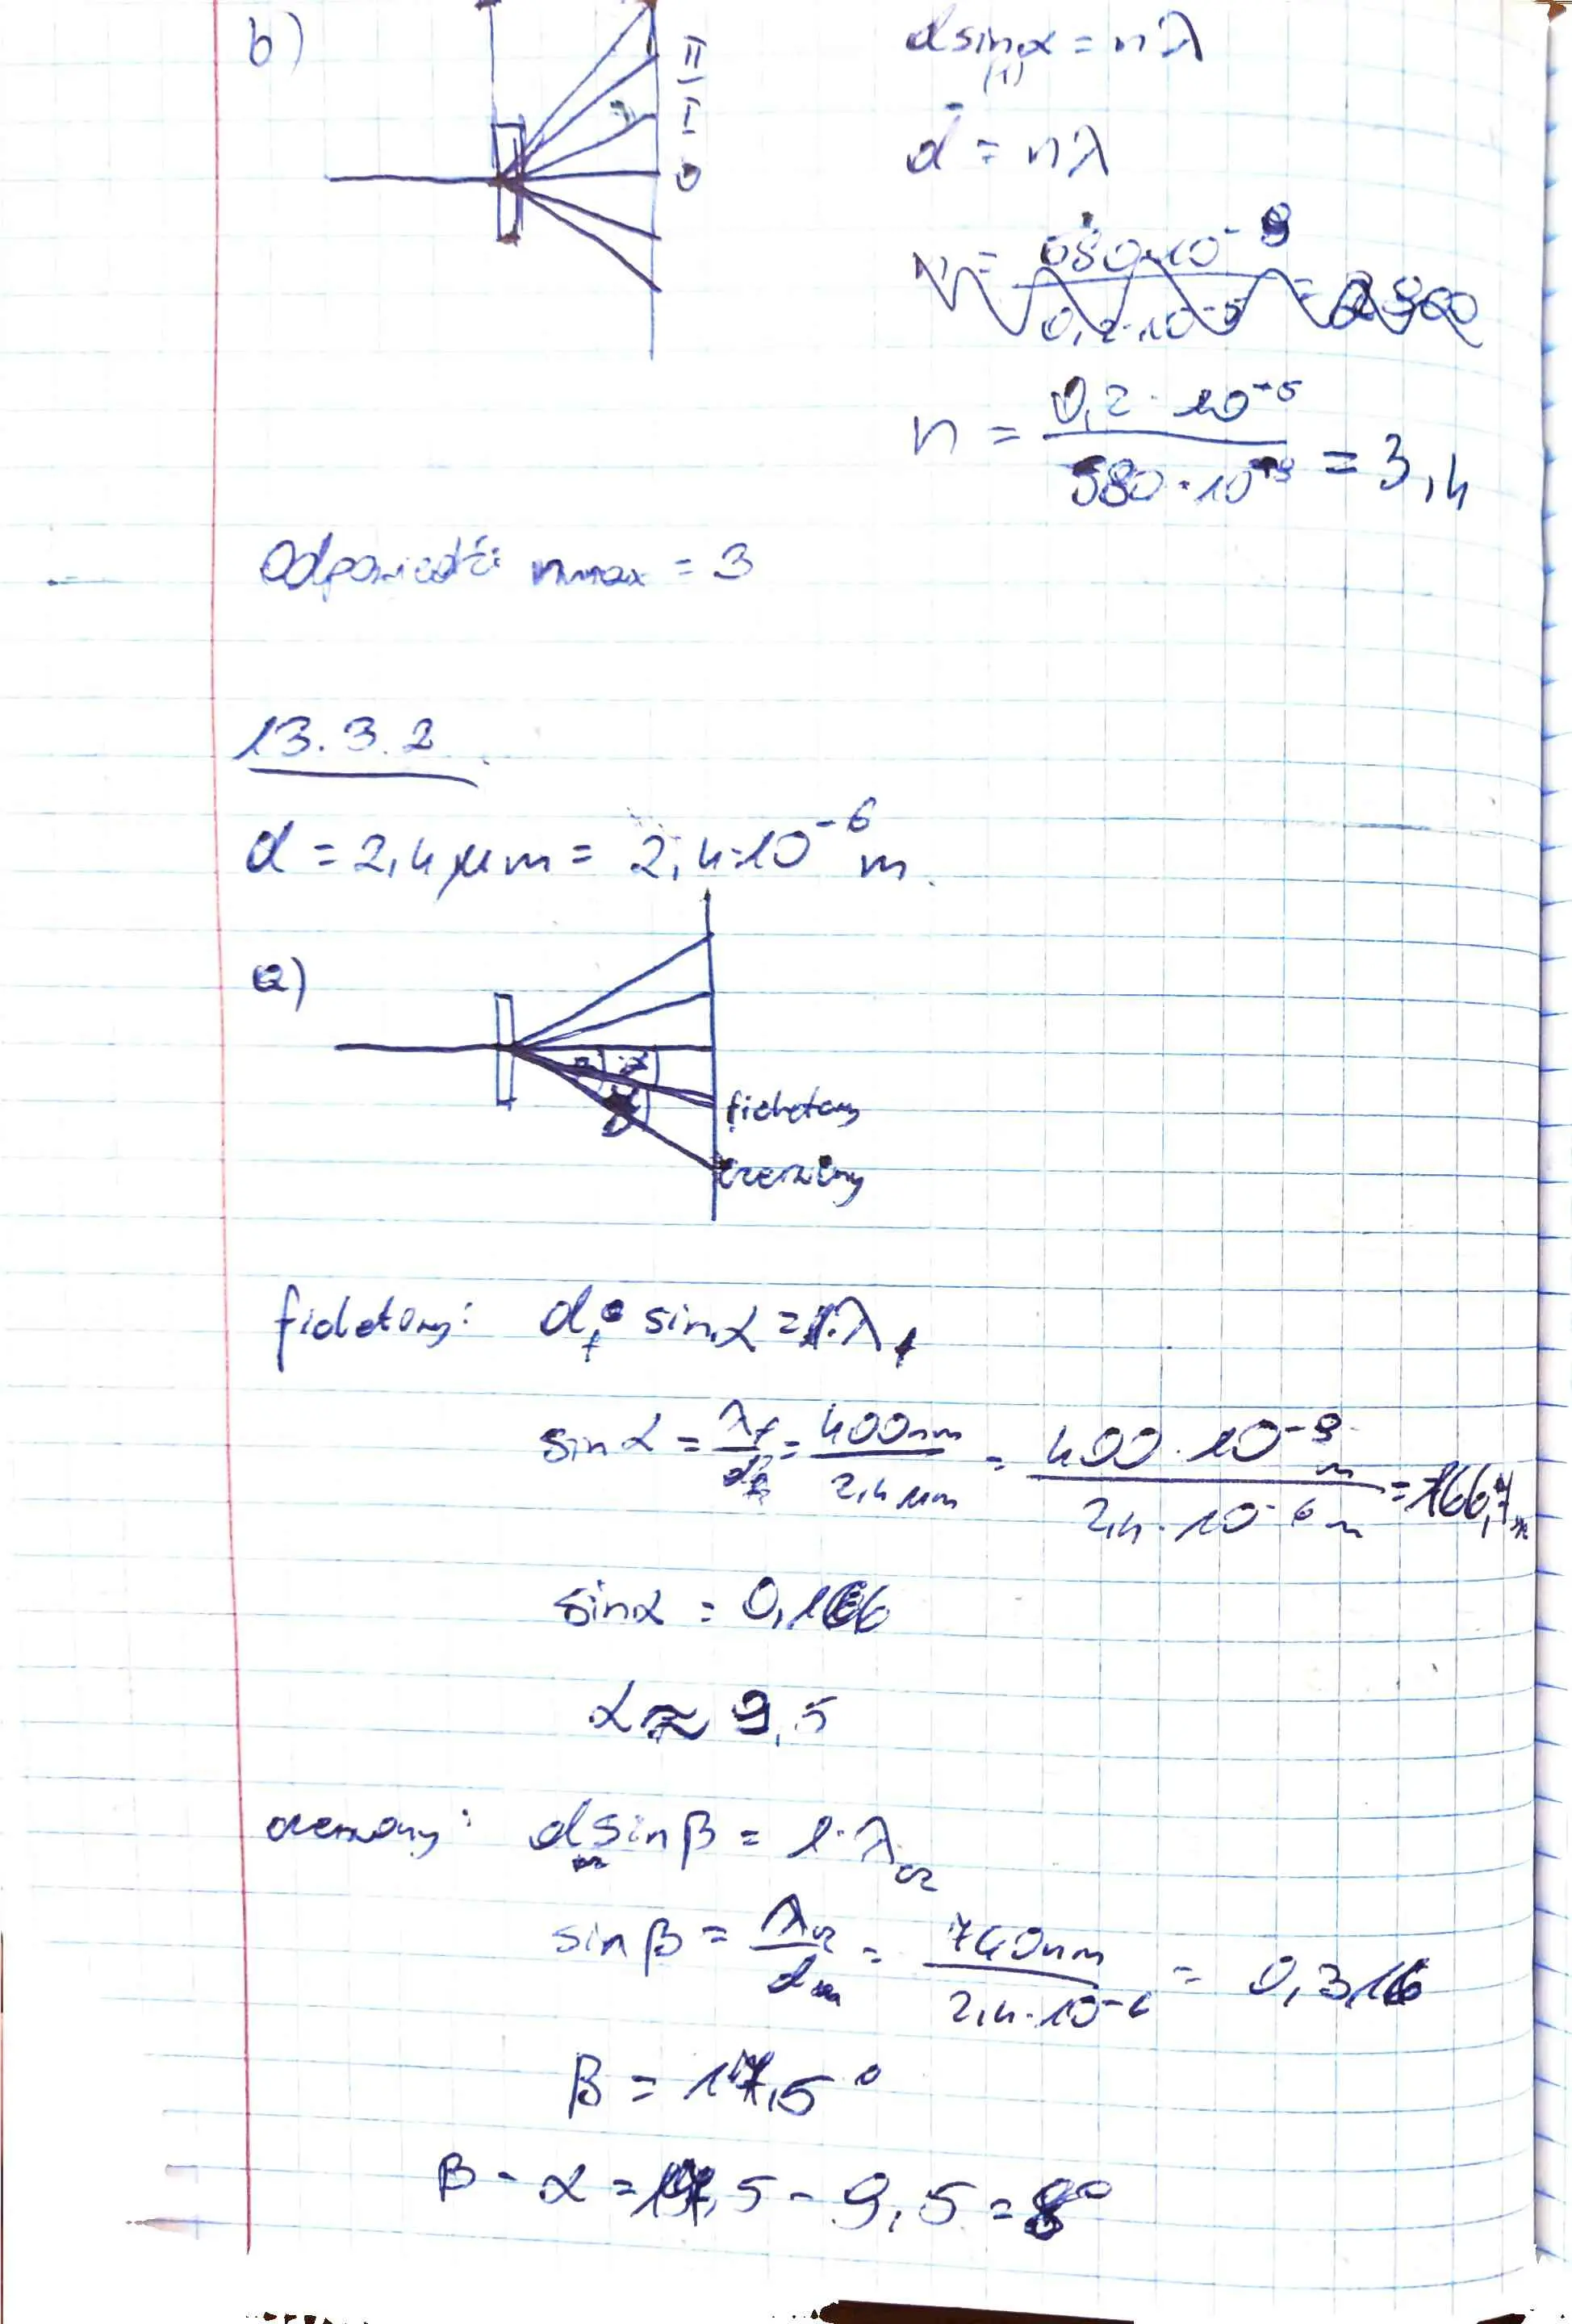 b)
II
I
0
d sin α = nλ
(1)
d = nλ
n = 580·10⁻⁹ / 0,2·10⁻⁵ =
n = 0,2·10⁻⁵ / 580·10⁻⁹ = 3,4
Odpowiedź: nmax = 3
13.3.2
d = 2,4 μm = 2,4·10⁻⁶ m
a)
fioletowy
czerwony
fioletowy: d · sin α = 1·λf
sin α = λf / d = 400nm / 2,4 μm = 400·10⁻⁹ m / 2,4·10⁻⁶ m = 166,7
sin α = 0,166
α ≈ 9,5
czerwony: d sin β = 1·λcz
sin β = λcz / d = 740nm / 2,4·10⁻⁶ = 0,316
β = 17,5°
β - α = 17,5 - 9,5 = 8°